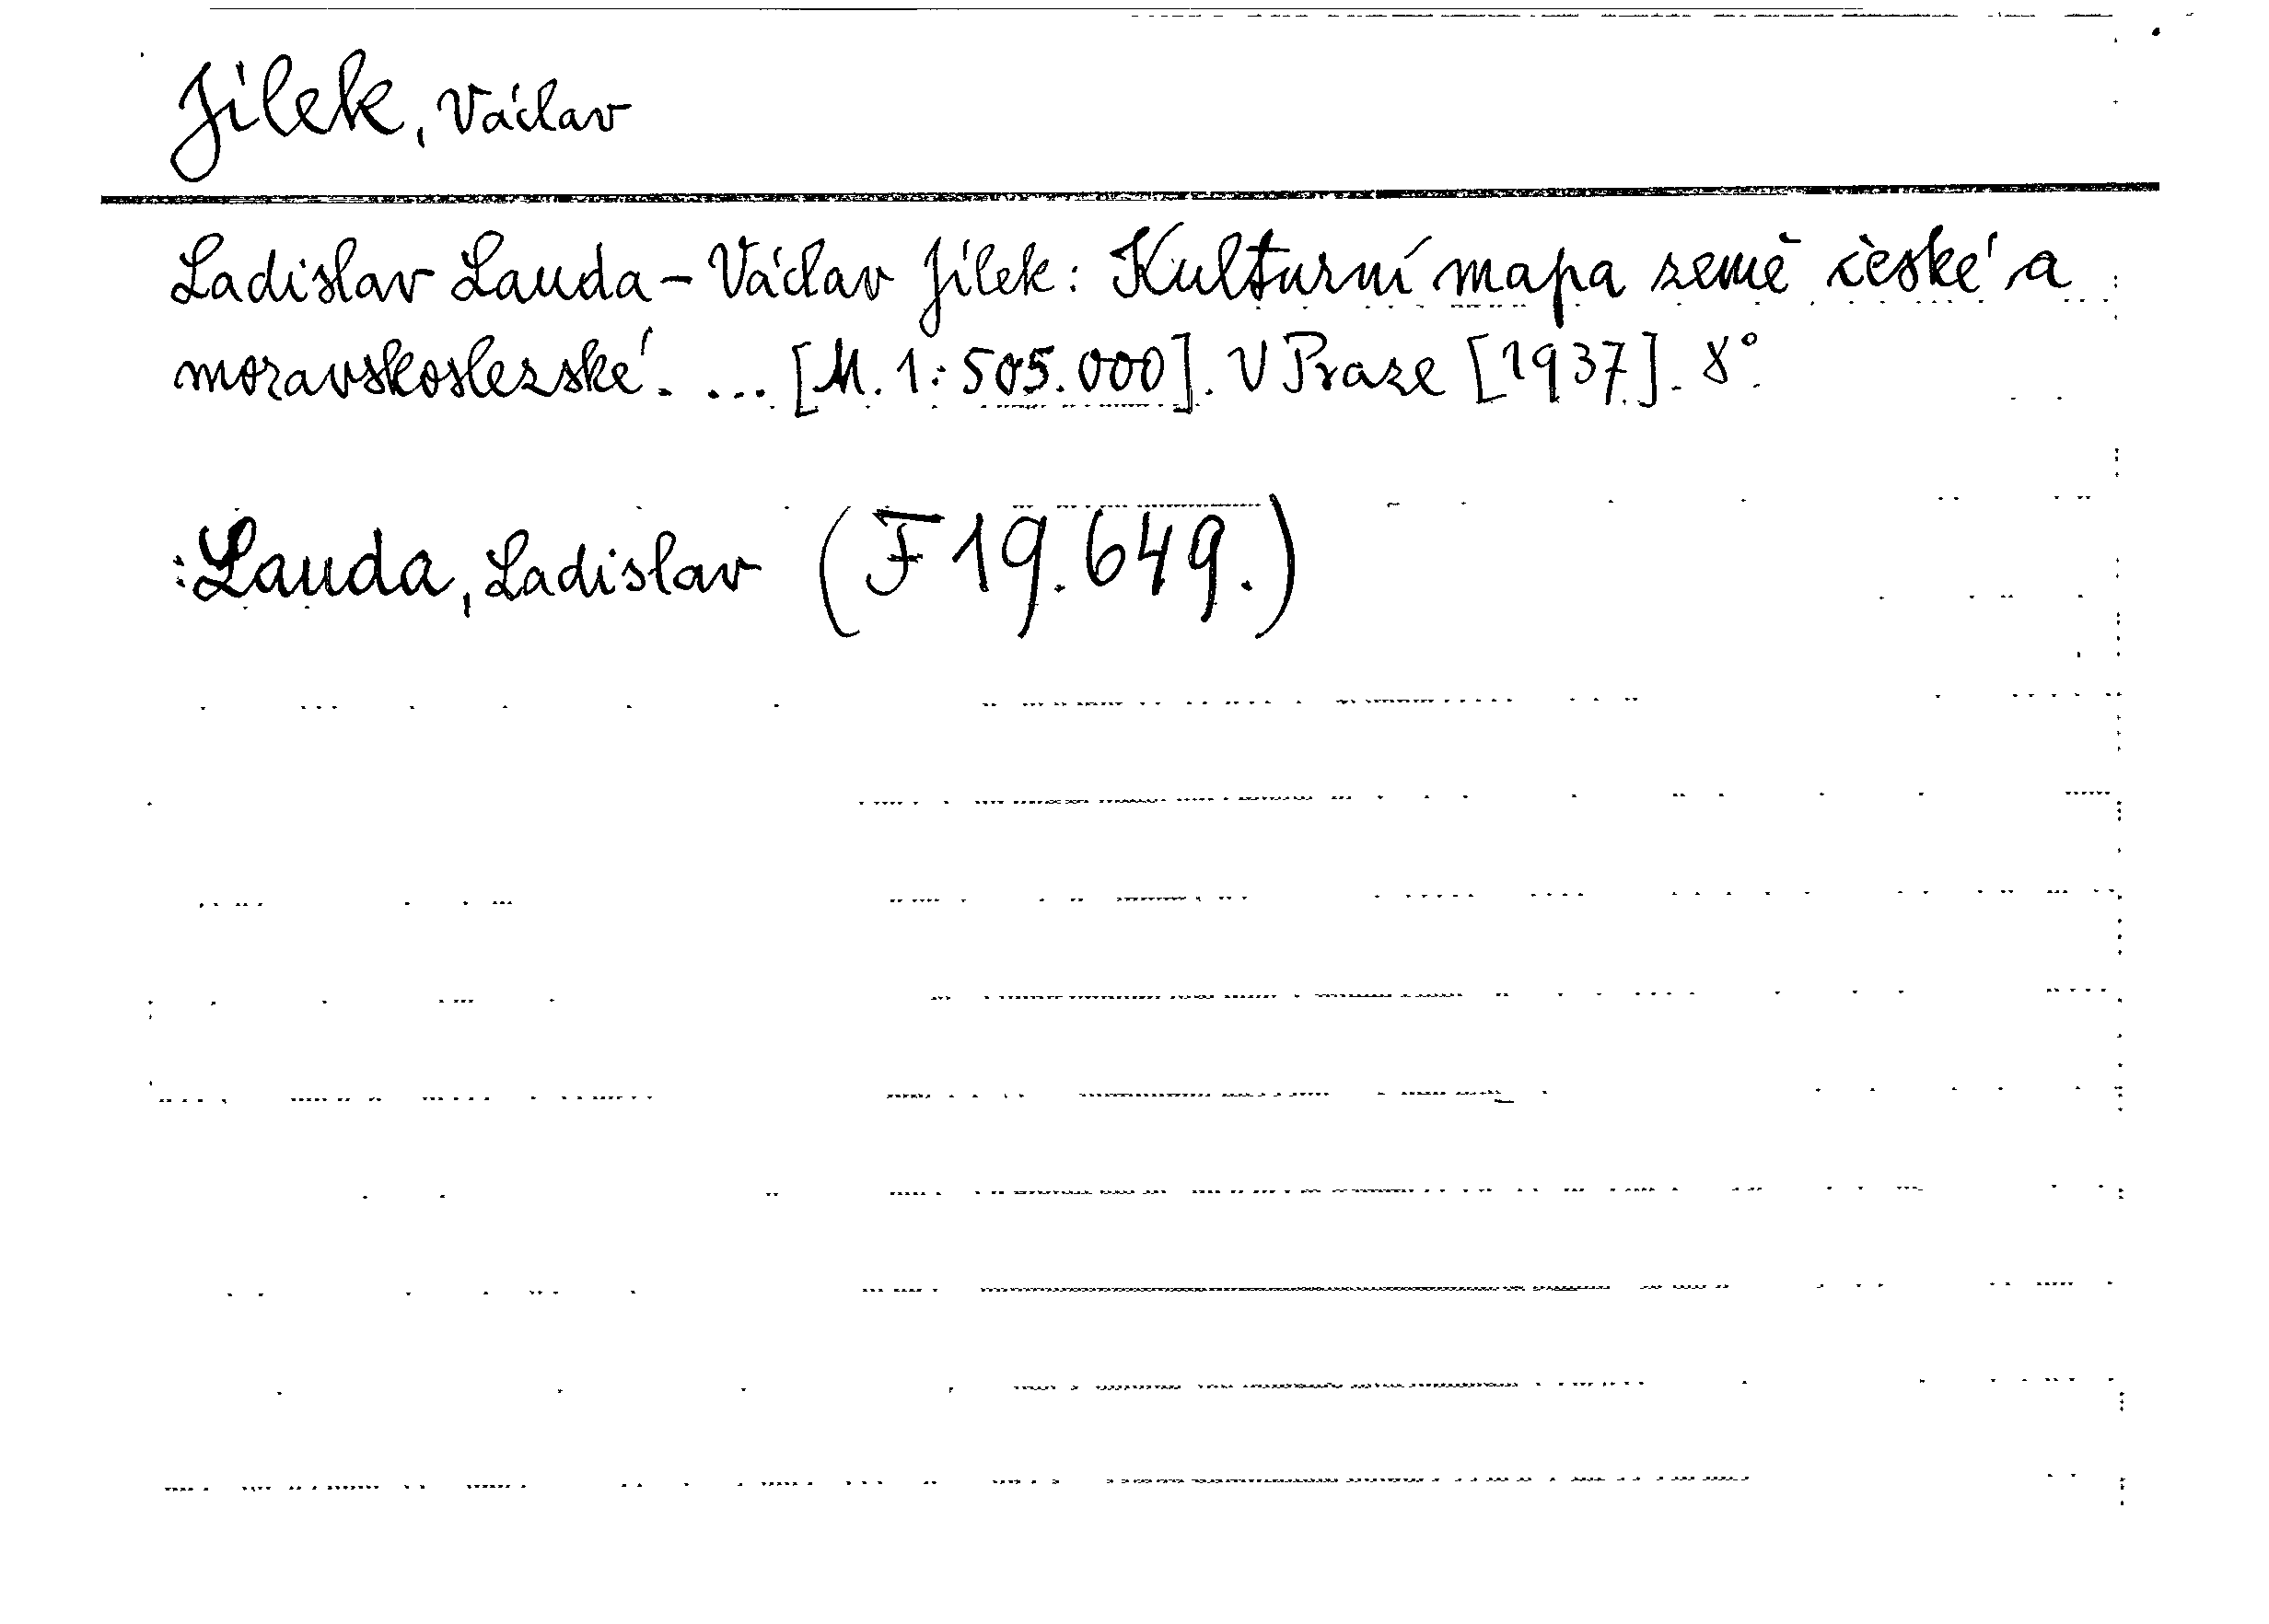 Jílek, Václav
Ladislav Lauda - Václav Jílek: Kulturní mapa země české a
moravskoslezské. ... [M. 1:505.000]. V Praze [1937]. 8°.
:Lauda, Ladislav (F 19.649.)